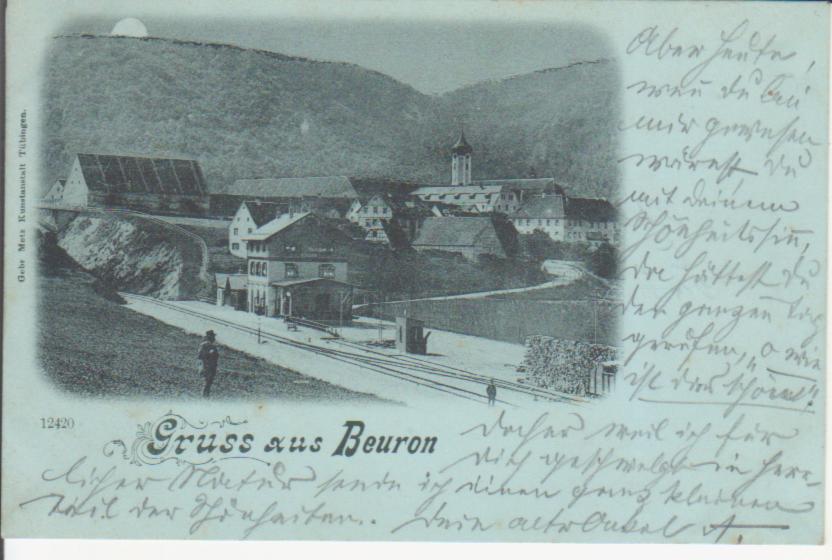 Gebr Metz Kunstanstalt Tübingen.
12420
Gruss aus Beuron
Aber heute,
wenn du bei
mir gewesen
wärest Du
mit deinem
Schönheitssinn,
da hättest Du
den ganzen Tag
gerufen, "O wie
ist das schön!"
Daher weil ich für
Dich geschwelgt in herr-
licher Natur sende ich einen ganz kleinen
Teil der Schönheiten.. Dein alter Onkel A.